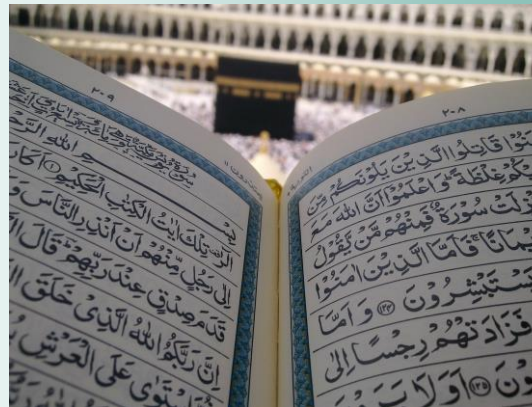 ٢٠٨
قَاتِلُوا الَّذِيْنَ يَلُوْنَكُمْ مِّنَ
غِلْظَةً ؕ وَاعْلَمُوْۤا اَنَّ اللّٰهَ مَعَ
سُوْرَةٌ فَمِنْهُمْ مَّنْ يَّقُوْلُ
فَاَمَّا الَّذِيْنَ اٰمَنُوْا
سْتَبْشِرُوْنَ ﴿١٢٤﴾ وَاَمَّا
فَزَادَتْهُمْ رِجْسًا اِلٰى
وْنَ ﴿١٢٥﴾ اَوَلَا يَرَوْ
٢٠٩
بِسْمِ اللّٰهِ الرَّحْ
الٓرٰ تِلْكَ اٰيٰتُ الْكِتٰبِ الْحَكِيْمِ ﴿١﴾ اَكَا
اِلٰى رَجُلٍ مِّنْهُمْ اَنْ اَنْذِرِ النَّاسَ وَ
قَدَمَ صِدْقٍ عِنْدَ رَبِّهِمْ ؕ قَالَ ال
اِنَّ رَبَّكُمُ اللّٰهُ الَّذِيْ خَلَقَ ال
سْتَوٰى عَلَى الْعَرْشِ